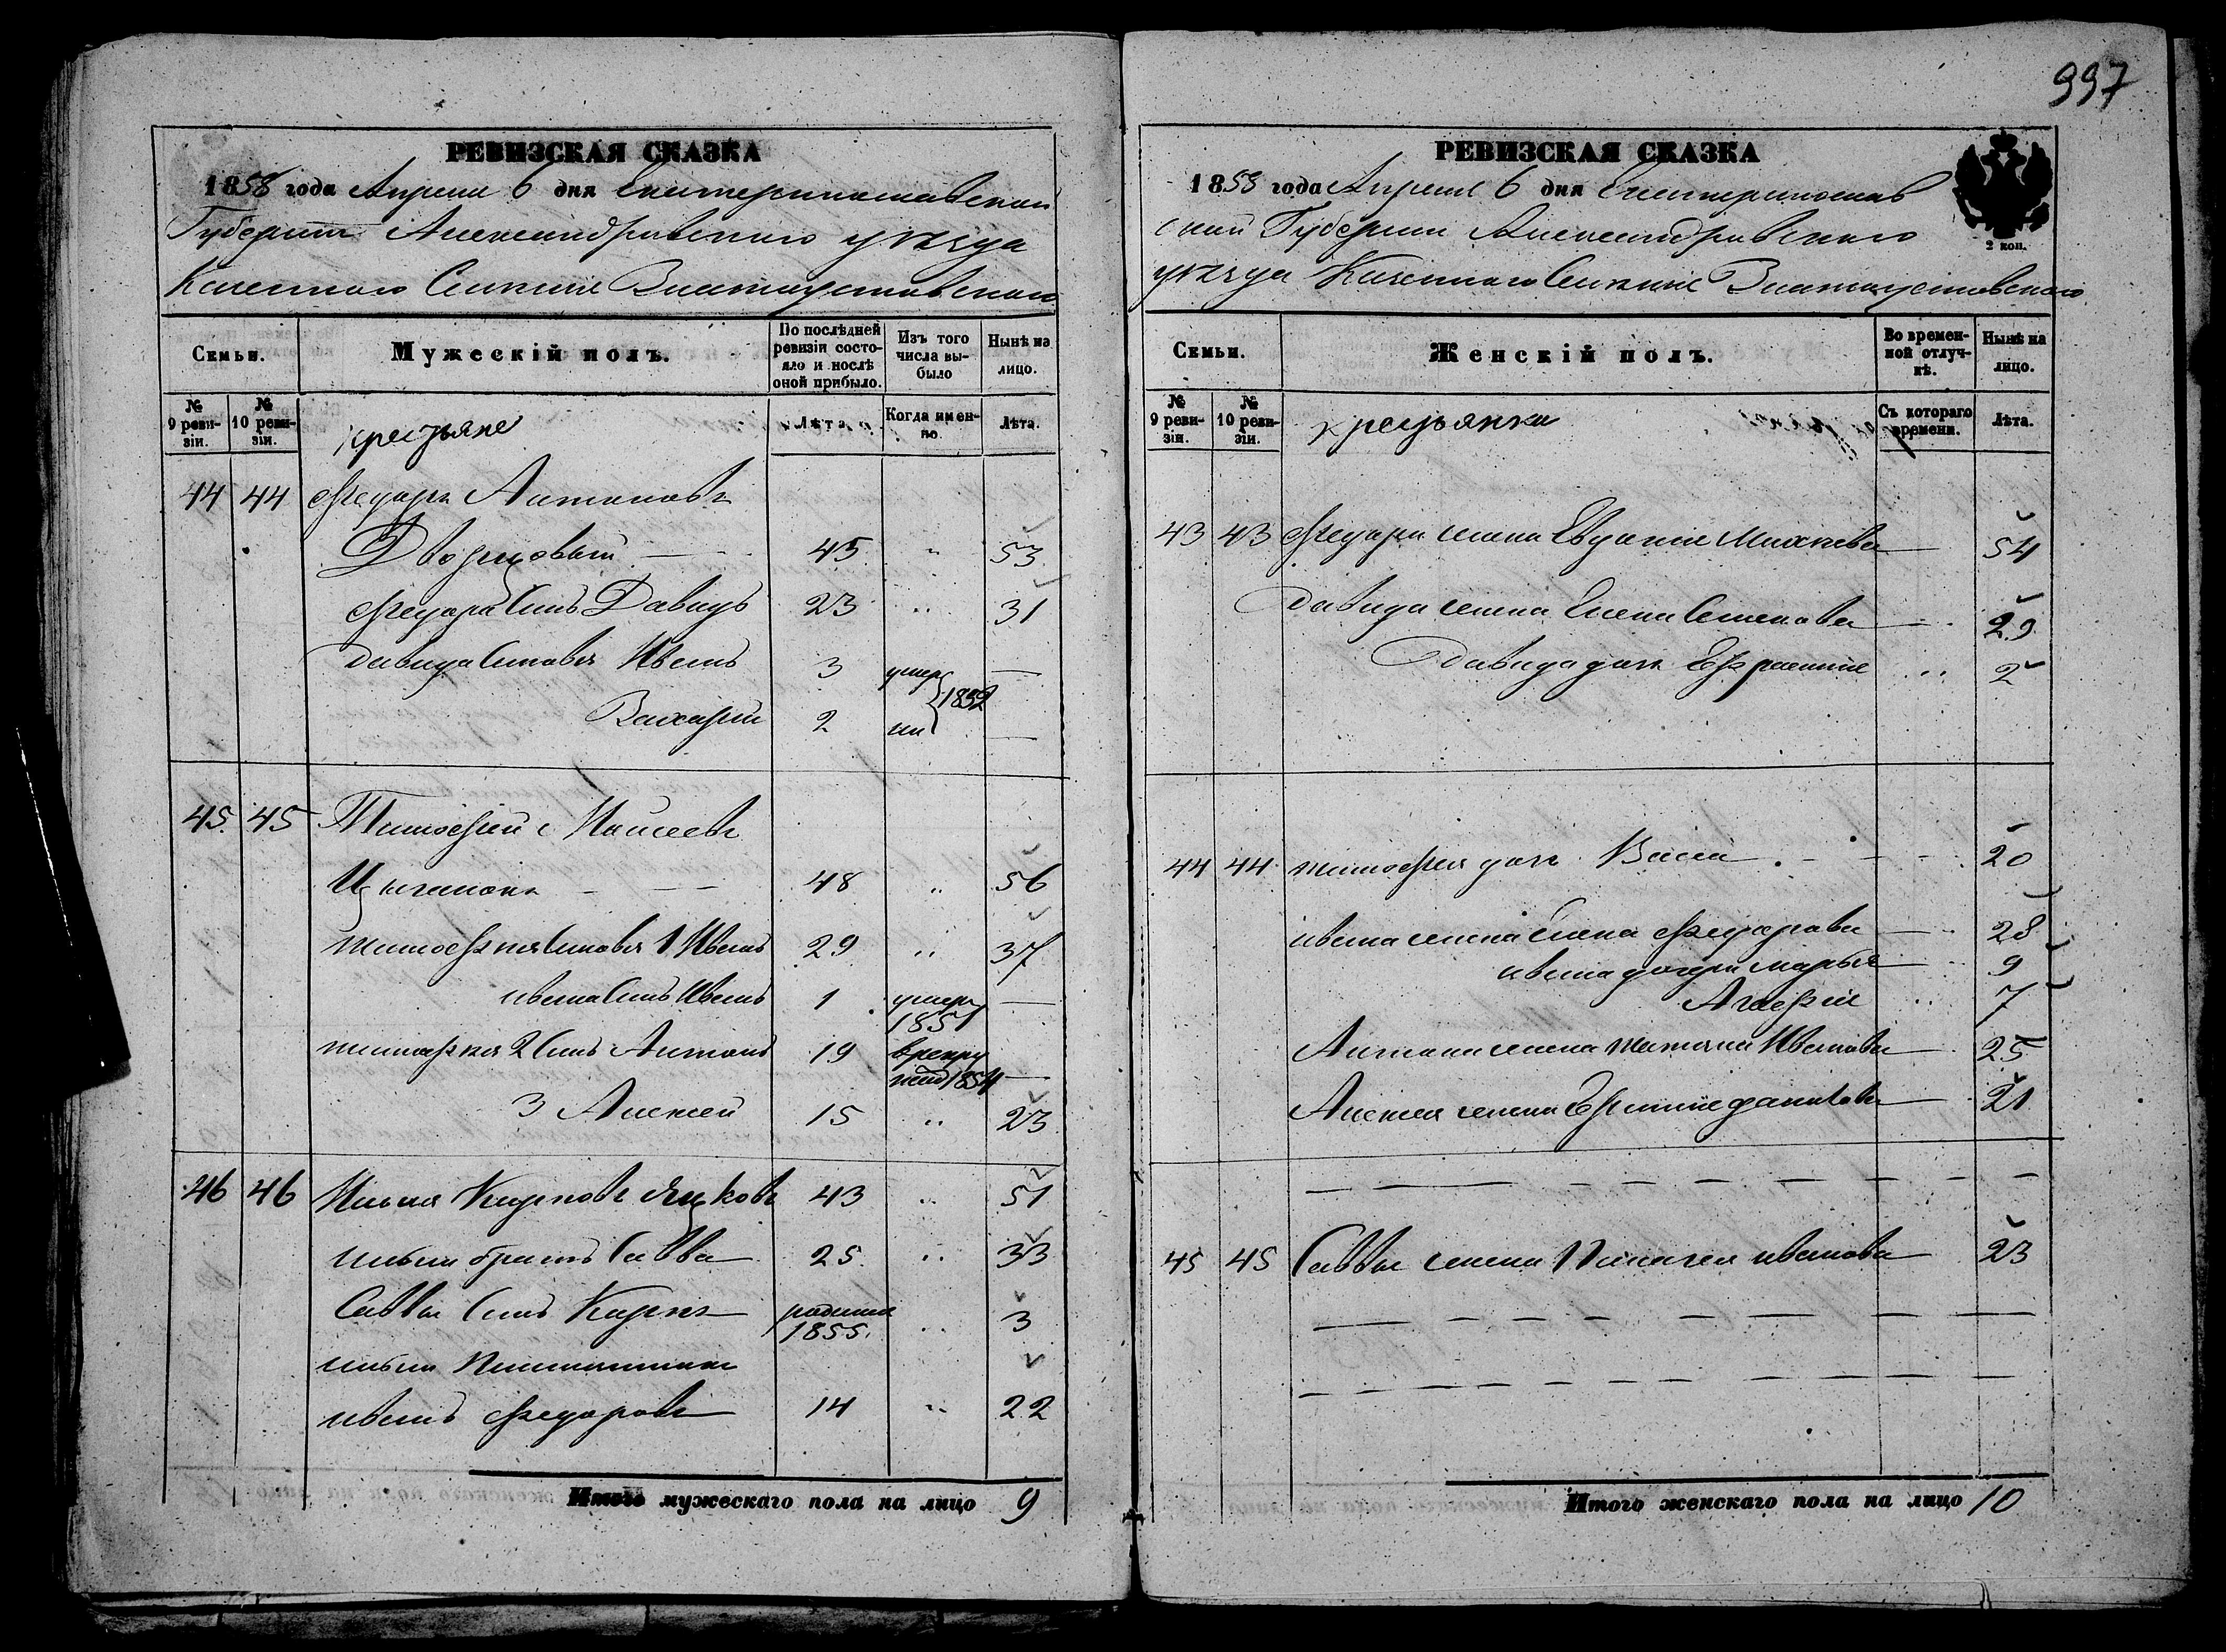 997
РЕВИЗСКАЯ СКАЗКА
1858 года Апреля 6 дня Екатеринославской
Губернии Александровского уѣзда
Казенного Селения Златоустовского
Семьи.
Мужескій полъ.
По послѣдней ревизіи состояло и послѣ оной прибыло.
Изъ того числа выбыло
Нынѣ на лицо.
№ 9 ревизіи.
№ 10 ревизіи.
крестьяне
Лѣта.
Когда именно.
Лѣта.
44 44 Федоръ Антоновъ
Дворцовый 45 " 53
Федора Сынъ Давидъ 23 " 31
Давида Сыновья Иванъ 3 умер —
Захарий 2 ли 1852 —
45 45 Тимофей Моисеевъ
Цыганокъ 48 " 56
Тимофея Сыновья 1 Иванъ 29 " 37
Ивана Сынъ Иванъ 1 умеръ 1851 —
Тимофея 2 Сынъ Антонъ 19 в рекру 1854 —
3 Алексей 15 " 23
46 46 Илья Карповъ Яцковъ 43 " 51
Ильи братъ Савва 25 " 33
Саввы Сынъ Карпъ родился 1855 " 3
Ильи
Иванъ Федоровъ 14 " 22
Итого мужескаго пола на лицо 9
РЕВИЗСКАЯ СКАЗКА
1858 года Апреля 6 дня Екатеринослав
ской Губернии Александровского
уѣзда Казенного Селения Златоустовского
2 коп.
Семьи.
Женскій полъ.
Во временной отлучкѣ.
Нынѣ на лицо.
№ 9 ревизіи.
№ 10 ревизіи.
крестьянки
Съ котораго времени.
Лѣта.
43 43 Федора жена Евдокия — 54
Давида жена Елена Семенова — 29
Давида дочь Ефросиния " 2
44 44 Тимофея дочь Васса — 20
Ивана жена Елена Федорова — 28
Ивана дочери Марья — 9
Агафия " 7
Антона жена Татьяна Иванова — 25
Алексея жена Ефимия — 21
45 45 Саввы жена Пелагея Иванова 23
Итого женскаго пола на лицо 10